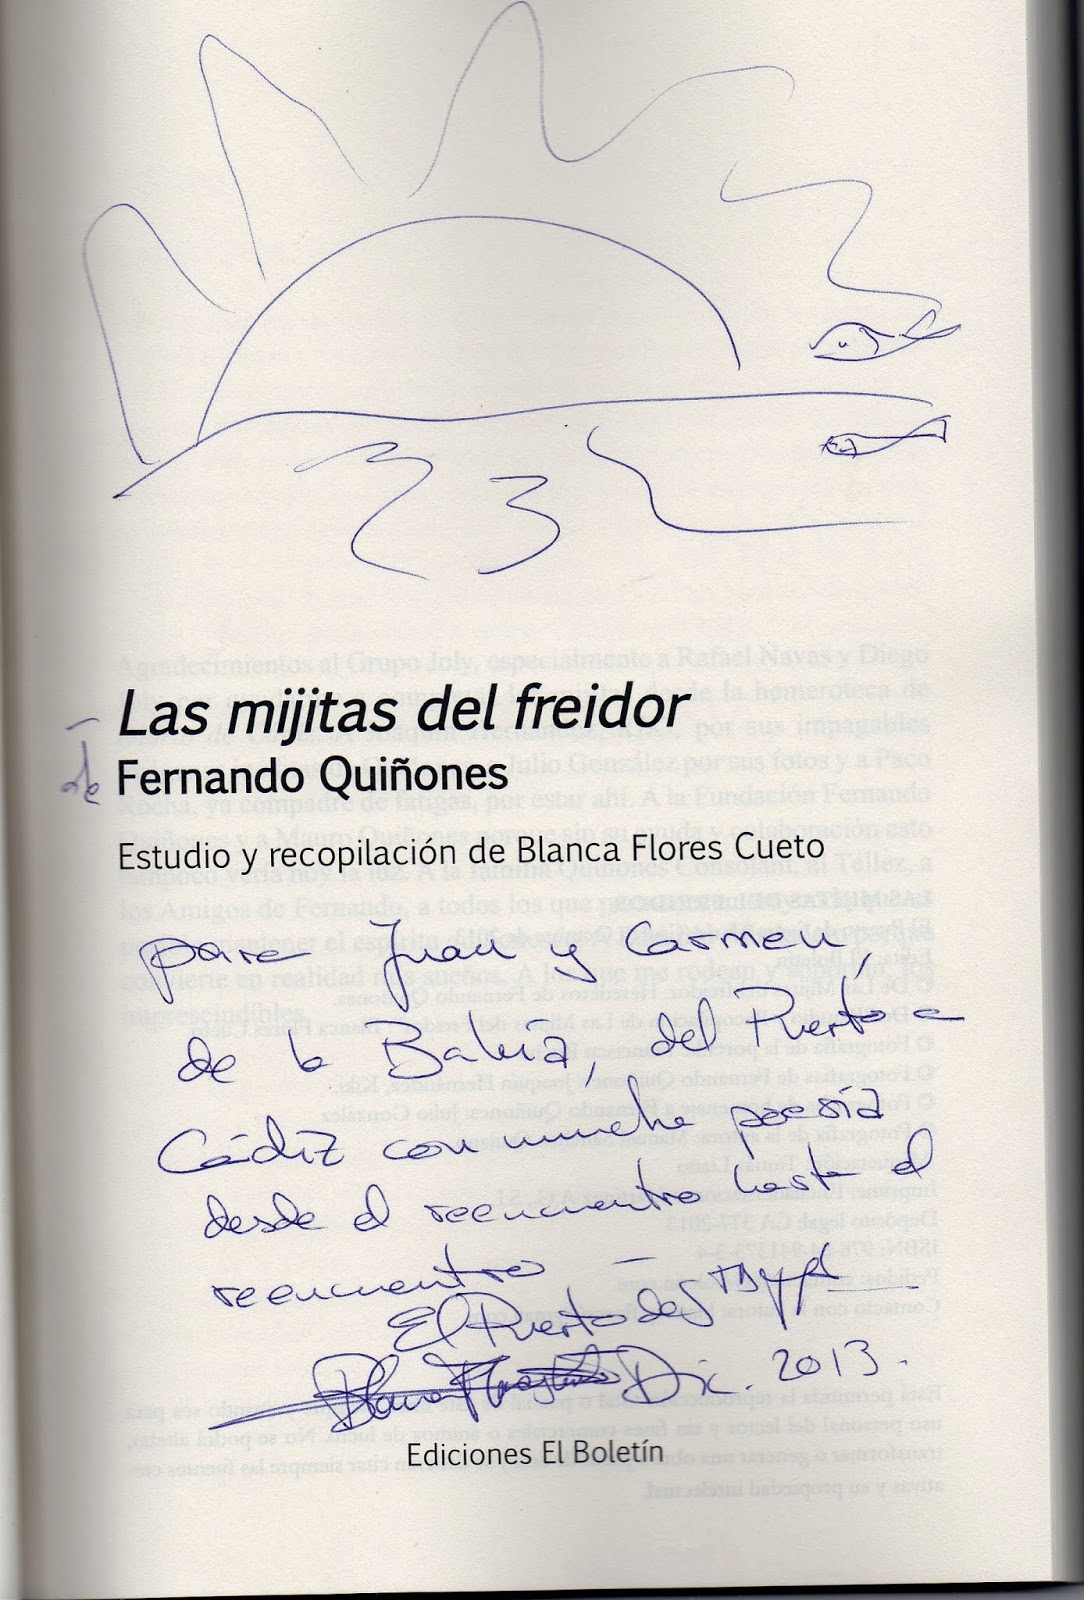 Las mijitas del freidor
de Fernando Quiñones
Estudio y recopilación de Blanca Flores Cueto
para Juan y Carmen,
de la Bahía, del Puerto a
Cádiz con mucha poesía
desde el reencuentro hasta el
reencuentro
El Puerto de
Dic. 2013.
Ediciones El Boletín